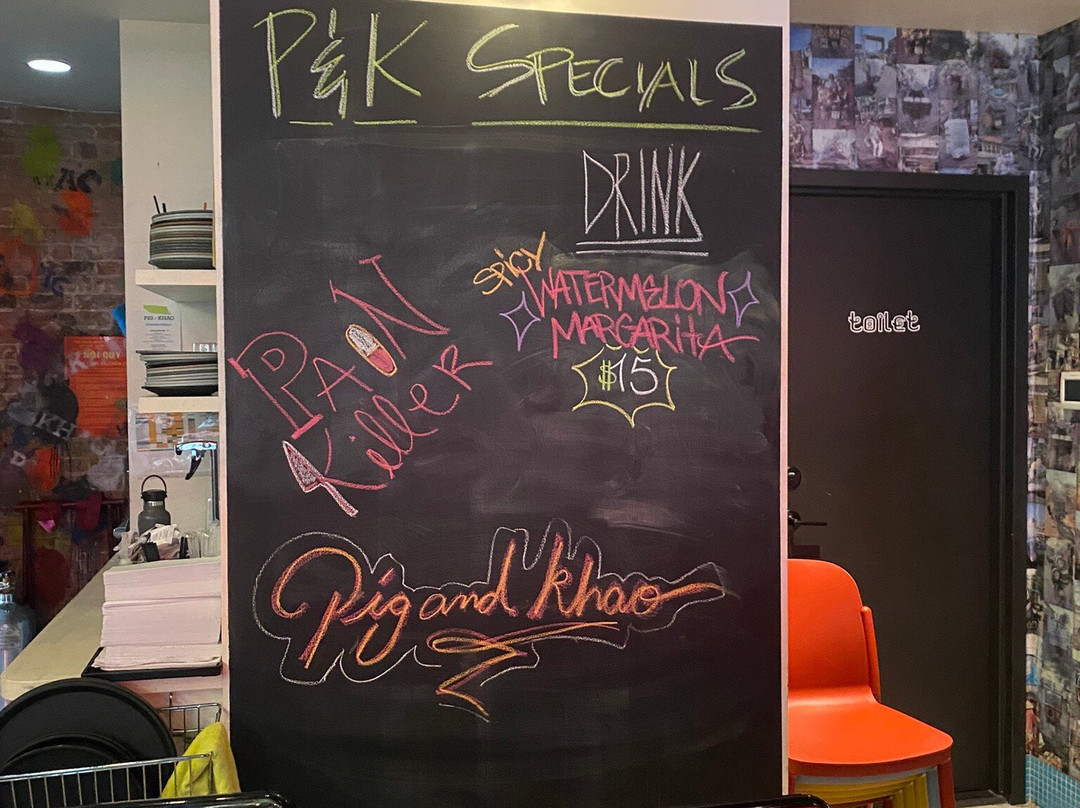 P&K SPECIALS
DRINK
SPICY
WATERMELON
MARGARITA
$15
PAIN
Killer
Pig and Khao
toilet
PIG & KHAO
KH